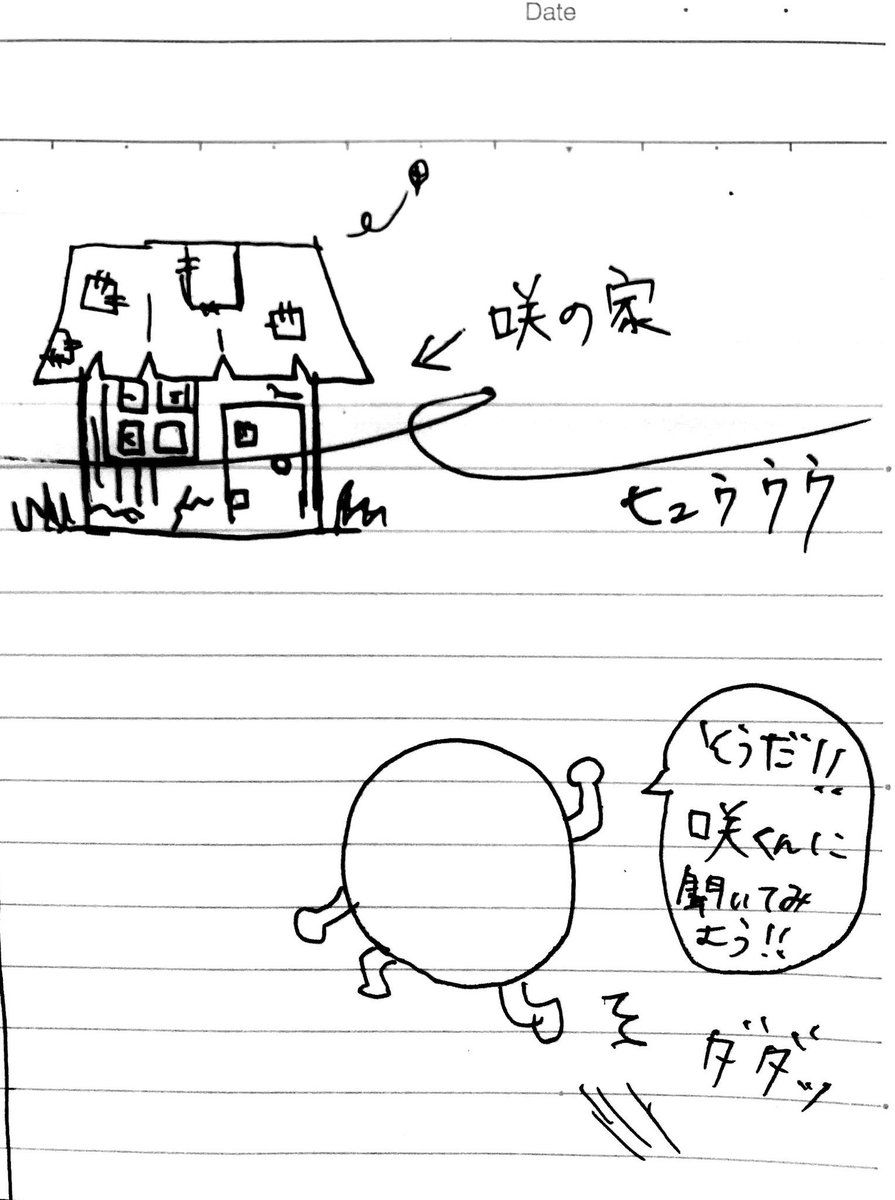 Date
咲の家
ヒュウウウ
そうだ!!
咲くんに
聞いてみ
よう!!
ダダッ